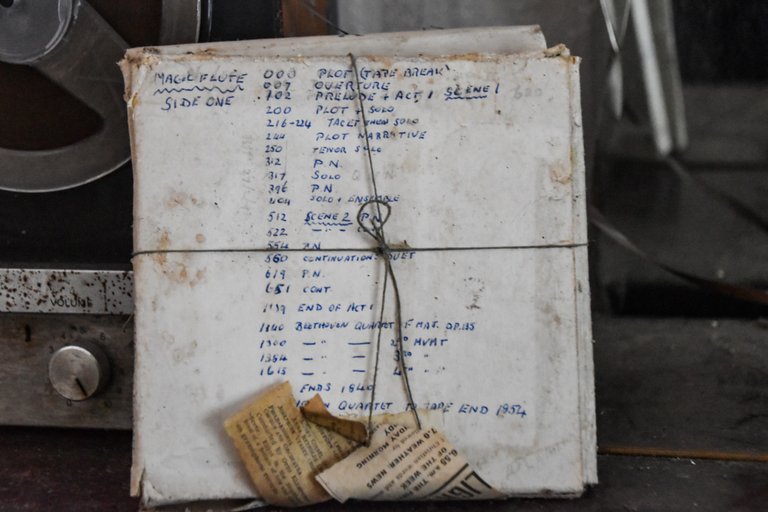 MAGIC FLUTE
SIDE ONE
000 PLOT (TAPE BREAK)
007 OVERTURE
102 PRELUDE + ACT 1 SCENE 1
200 PLOT + SOLO
216-224 TACET THEN SOLO
244 PLOT NARRATIVE
250 TENOR SOLO
312 P.N.
317 SOLO
396 P.N.
404 SOLO + ENSEMBLE
512 SCENE 2 P.N.
522
554 P.N.
560 CONTINUATION DUET
619 P.N.
651 CONT.
1139 END OF ACT 1
1140 BEETHOVEN QUARTET F MAJ. OP. 135
1300 — " — 2ND MVMT
1384 — " — 3RD "
1615 — " — 4TH "
ENDS 1840
QUARTET TO TAPE END 1954
VOLUME
6.50 a.m. THE
OF THE WEEK
7.0 WEATHER: NEWS
TODAY
MORNING